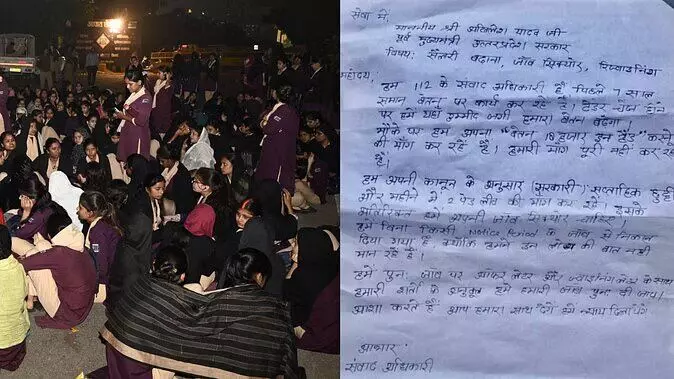 सेवा में,
माननीय श्री अखिलेश यादव जी
पूर्व मुख्यमंत्री उत्तरप्रदेश सरकार
विषय: सैलरी बढ़ाना, जॉब सिक्योर,
महोदय,
हम 112 के संवाद अधिकारी हैं पिछले 7 साल
समान वेतन पर कार्य कर रहे हैं। टेंडर चेंज होने
पर हमें यही उम्मीद जगी हमारा वेतन बढ़ेगा।
मौके पर हम अपना "वेतन 18 हजार इन हैंड" करने
की माँग कर रहे हैं। हमारी माँग पूरी नहीं कर रहे
हैं।
हम अपनी कानून के अनुसार (सरकारी) सप्ताहिक छुट्टी
और महीने में 2 पेड लीव की मांग कर रहे। इसके
अतिरिक्त हमें अपनी जॉब सिक्योर चाहिए
हमें बिना किसी Notice Period के जॉब से निकाल
दिया गया है क्योंकि हमने इन लोगों की बात नहीं
मान रहे हैं।
हमें पुनः जॉब पर ऑफर लेटर और ज्वाइनिंग लेटर के साथ
हमारी शर्तों के अनुकूल हमें हमारी जॉब पुनः दी जाए।
आशा करते हैं आप हमारा साथ देंगे हमें न्याय दिलाएंगे
आभार
संवाद अधिकारी